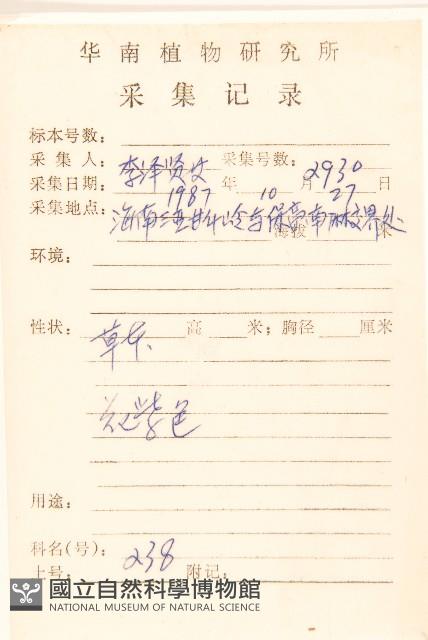 华南植物研究所
采集记录
标本号数:
采集人: 李泽贤 采集号数: 2930
采集日期: 1987 年 10 月 27 日
采集地点: 海南三亚甘什岭与保亭南林交界处
海拔 米
环境:
性状: 草本 高 米; 胸径 厘米
花紫色
用途:
科名(号): 238
上号: 附记:
國立自然科學博物館
NATIONAL MUSEUM OF NATURAL SCIENCE